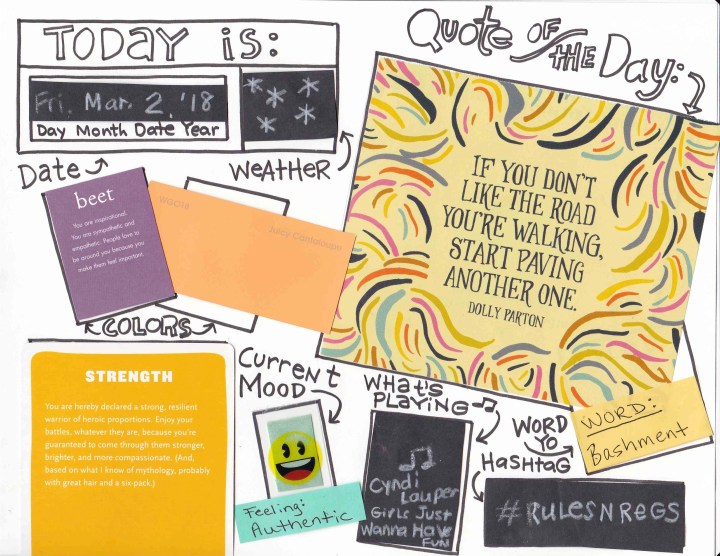 TODAY is:
Fri. Mar. 2, '18
Day Month Date Year
Date
WeATHER
Quote of the Day:
IF YOU DON'T
LIKE THE ROAD
YOU'RE WALKING,
START PAVING
ANOTHER ONE.
DOLLY PARTON
beet
You are inspirational.
You are sympathetic and
empathetic. People love to
be around you because you
make them feel important.
Juicy Cantaloupe
COLORS
STRENGTH
You are hereby declared a strong, resilient
warrior of heroic proportions. Enjoy your
battles, whatever they are, because you're
guaranteed to come through them stronger,
brighter, and more compassionate. (And,
based on what I know of mythology, probably
with great hair and a six-pack.)
CURRent
MOOD
Feeling:
Authentic
WHat's
PLAYING
Cyndi
Lauper
Girls Just
Wanna Have
FUN
WORD
YO
HaSHtaG
WORD:
Bashment
#RULESNREGS